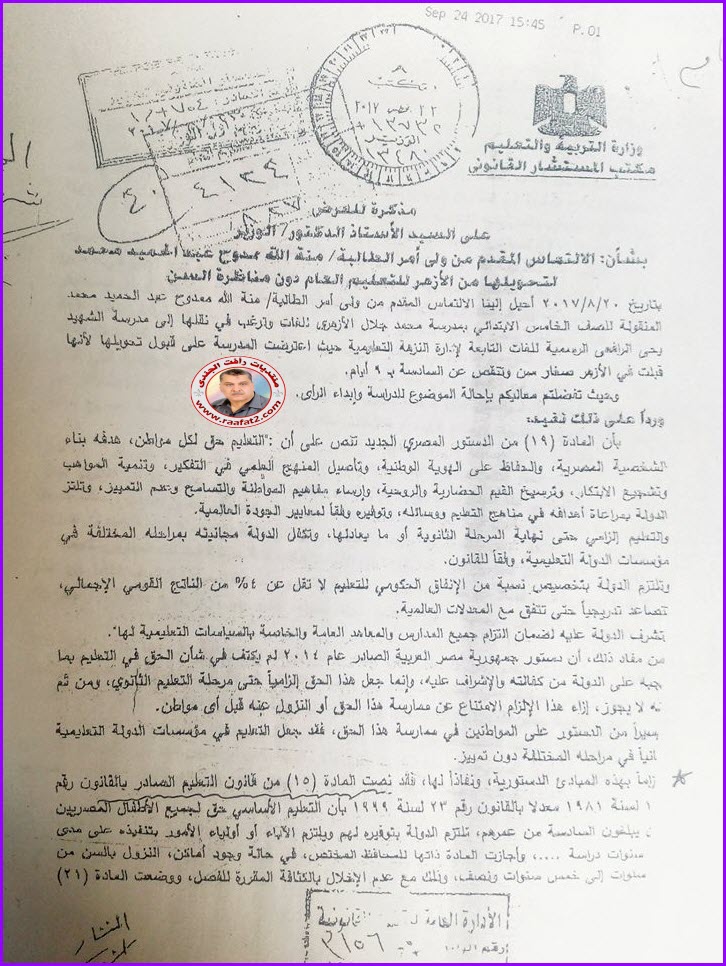 Sep 24 2017 15:45 P.01
وزارة التربية والتعليم
مكتب المستشار القانونى
مكتب
٢٠١٧
الوزير
١٣٤٨٠
٤١٣٤
٤٠
مذكرة للعرض
على السيد الأستاذ الدكتور/ الوزير
بشأن: الالتماس المقدم من ولى أمر الطالبة/ منة الله ممدوح عبد الحميد محمد
لتحويلها من الأزهر للتعليم العام دون مناظرة السن
بتاريخ ٢٠١٧/٨/٢٠ أحيل إلينا الالتماس المقدم من ولى أمر الطالبة/ منة الله ممدوح عبد الحميد محمد
المنقولة للصف الخامس الابتدائي بمدرسة محمد جلال الأزهرى للغات وترغب في نقلها إلى مدرسة الشهيد
يحى الرافعى الرسمية للغات التابعة لإدارة النزهة التعليمية حيث اعترضت المدرسة على قبول تحويلها لأنها
قبلت في الأزهر صغار سن وتنقص عن السادسة بـ ٩ أيام.
وحيث تفضلتم معاليكم بإحالة الموضوع للدراسة وإبداء الرأى.
ورداً على ذلك نفيد:
بأن المادة (١٩) من الدستور المصري الجديد تنص على أن :"التعليم حق لكل مواطن، هدفه بناء
الشخصية المصرية، والحفاظ على الهوية الوطنية، وتأصيل المنهج العلمي في التفكير، وتنمية المواهب
وتشجيع الابتكار، وترسيخ القيم الحضارية والروحية، وإرساء مفاهيم المواطنة والتسامح وعدم التمييز، وتلتزم
الدولة بمراعاة أهدافه في مناهج التعليم ووسائله، وتوفيره وفقاً لمعايير الجودة العالمية.
والتعليم إلزامي حتى نهاية المرحلة الثانوية أو ما يعادلها، وتكفل الدولة مجانيته بمراحله المختلفة في
مؤسسات الدولة التعليمية، وفقاً للقانون.
وتلتزم الدولة بتخصيص نسبة من الإنفاق الحكومي للتعليم لا تقل عن ٤% من الناتج القومي الإجمالي،
تتصاعد تدريجياً حتى تتفق مع المعدلات العالمية.
وتشرف الدولة عليه لضمان التزام جميع المدارس والمعاهد العامة والخاصة بالسياسات التعليمية لها".
من مفاد ذلك، أن دستور جمهورية مصر العربية الصادر عام ٢٠١٤ لم يكتف في شأن الحق في التعليم بما
جبه على الدولة من كفالته والإشراف عليه، وإنما جعل هذا الحق إلزامياً حتى مرحلة التعليم الثانوي، ومن ثم
نه لا يجوز، إزاء هذا الإلزام الامتناع عن ممارسة هذا الحق أو النزول عنه قبل أى مواطن.
سيراً من الدستور على المواطنين في ممارسة هذا الحق، فقد جعل التعليم في مؤسسات الدولة التعليمية
انياً في مراحله المختلفة دون تمييز.
زاماً بهذه المبادئ الدستورية، ونفاذاً لها، فقد نصت المادة (١٥) من قانون التعليم الصادر بالقانون رقم
١ لسنة ١٩٨١ معدلا بالقانون رقم ٢٣ لسنة ١٩٩٩ بأن التعليم الأساسي حق لجميع الأطفال المصريين
ن يبلغون السادسة من عمرهم، تلتزم الدولة بتوفيره لهم ويلتزم الآباء أو أولياء الأمور بتنفيذه على مدى
سنوات دراسة .....، وأجازت المادة ذاتها للمحافظ المختص، في حالة وجود أماكن، النزول بالسن من
سنوات إلى خمس سنوات ونصف، وذلك مع عدم الإخلال بالكثافة المقررة للفصل، ووضعت المادة (٢١)
منتديات رأفت الجندى
www.raafat2.com
الأدارة العامة
قانونية
٣١٥٦